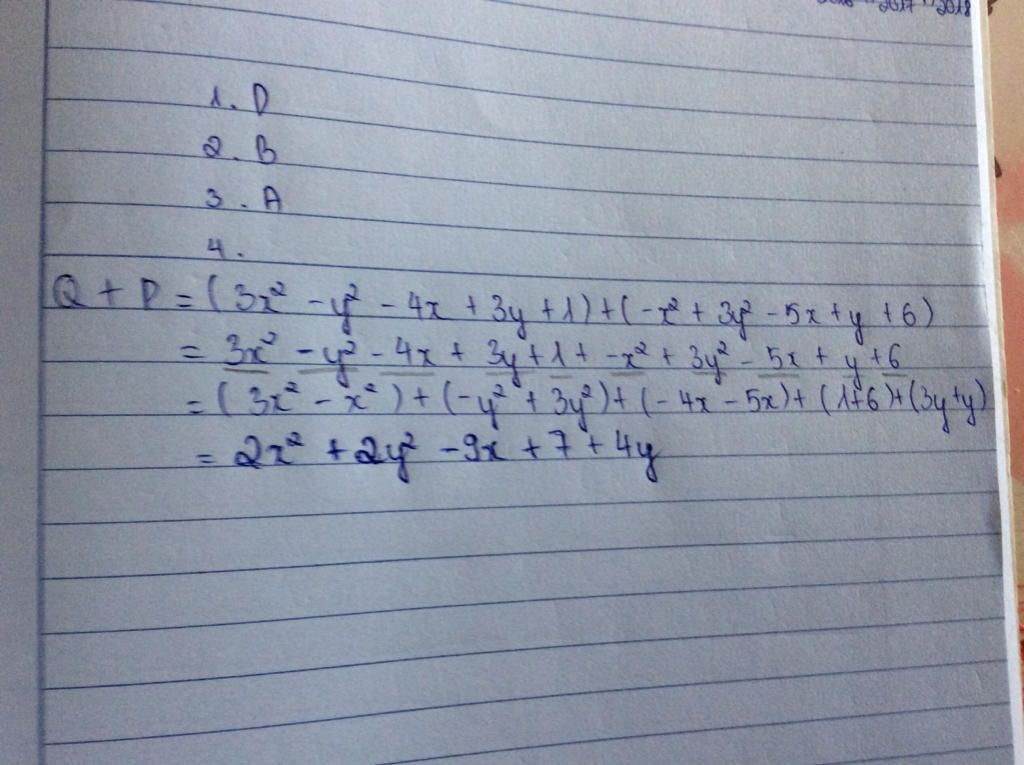 2017 2018
1. D
2. B
3. A
4.
Q + P = (3x² - y² - 4x + 3y + 1) + (-x² + 3y² - 5x + y + 6)
= 3x² - y² - 4x + 3y + 1 + -x² + 3y² - 5x + y + 6
= (3x² - x²) + (-y² + 3y²) + (-4x - 5x) + (1+6) + (3y+y)
= 2x² + 2y² - 9x + 7 + 4y